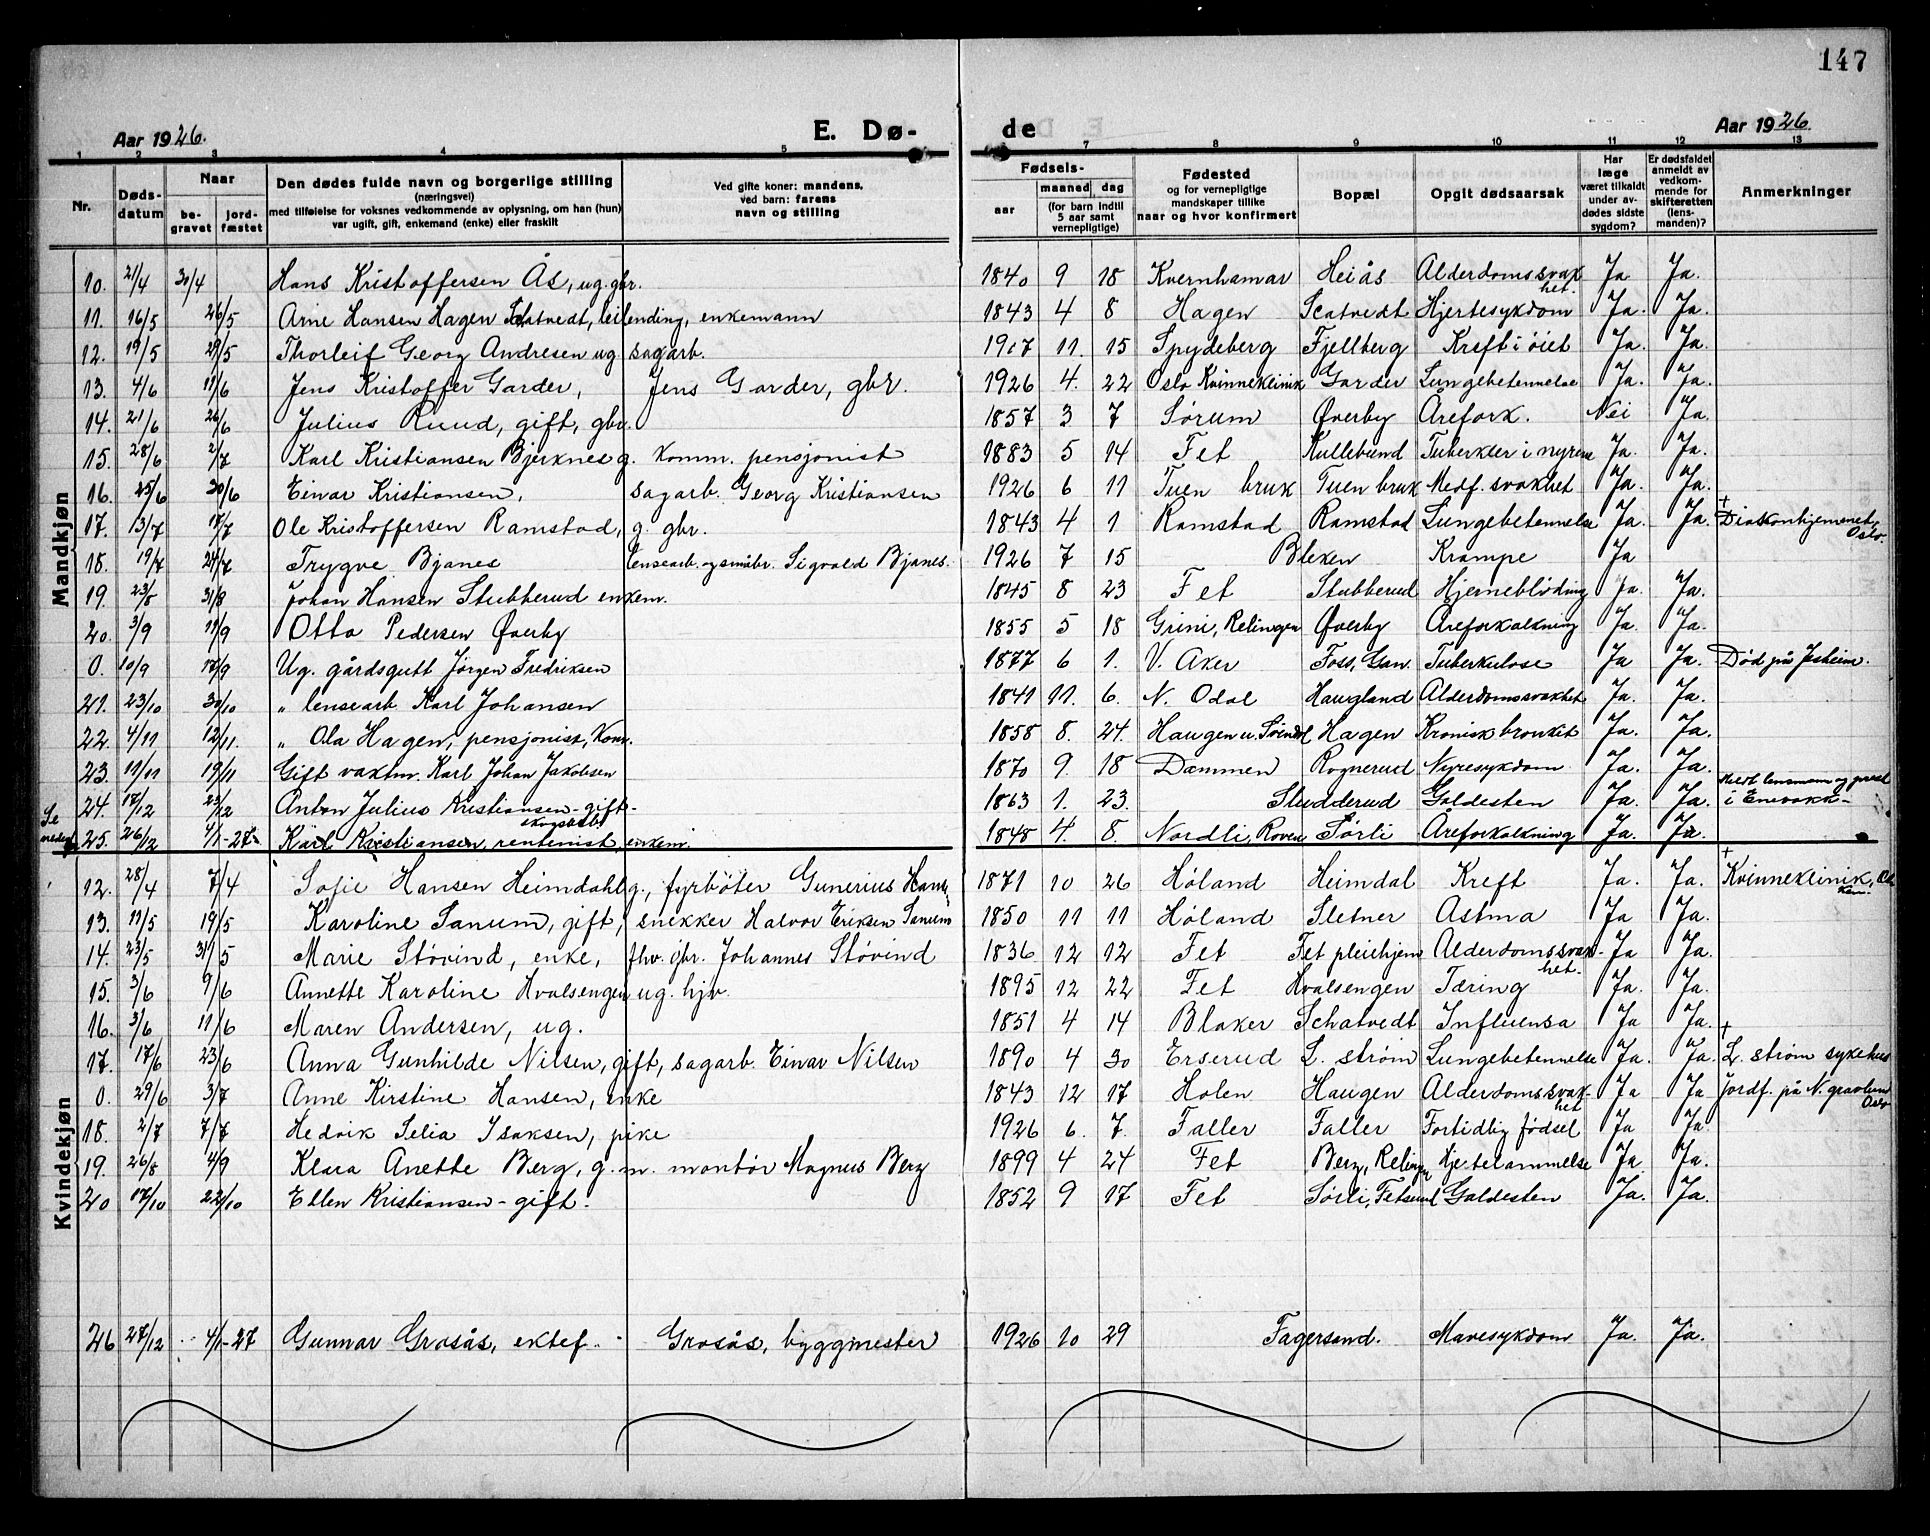 147
Aar 1926. E. Dø- de Aar 1926.
1 2 3 4 5 7 8 9 10 11 12 13
Nr. Døds-datum Naar be-gravet jord-fæstet Den dødes fulde navn og borgerlige stilling (næringsvei) med tilføielse for voksnes vedkommende av oplysning, om han (hun) var ugift, gift, enkemand (enke) eller fraskilt Ved gifte koner: mandens, ved barn: farens navn og stilling Fødsels- aar maaned dag (for barn indtil 5 aar samt vernepligtige) Fødested og for vernepligtige mandskaper tillike naar og hvor konfirmert Bopæl Opgit dødsaarsak Har læge været tilkaldt under av-dødes sidste sygdom? Er dødsfaldet anmeldt av vedkom-mende for skifteretten (lens-manden)? Anmerkninger
Mandkjøn
10. 21/4 30/4 Hans Kristoffersen Ås, ug. gbr. 1840 9 18 Kvernhamar Heiås Alderdomssvakhet. Ja Ja.
11. 16/5 26/5 Arne Hansen Hagen, leilending, enkemann 1843 4 8 Hagen Scatvedt Hjertesykdom Ja. Ja.
12. 19/5 29/5 Thorleif Georg Andresen ug. sagarb. 1907 11. 15 Spydeberg Fjellberg Kreft i öiet Ja. Ja.
13. 4/6 11/6 Jens Kristoffer Garder, Jens Garder, gbr. 1926 4. 22 Oslo Kvinneklinik Garder Lungebetennelse Ja. Ja.
14. 21/6 26/6 Julius Ruud, gift, gbr. 1857 3 7 Sørum Øverby Årefork. Nei Ja.
15. 28/6 2/7 Karl Kristiansen Bjerknes g. komm. pensjonist 1883 5 14 Fet Kullebund Tuberkler i nyrene Ja. Ja.
16. 25/6 30/6 Einar Kristiansen, sagarb. Georg Kristiansen 1926 6 11 Tuen bruk Tuen bruk Medf. svakhet Ja. Ja.
17. 13/7 17/7 Ole Kristoffersen Ramstad, g. gbr. 1843 4 1 Ramstad Ramstad Lungebetennelse Ja. Ja. + Diakonhjemmet, Oslo.
18. 19/7 24/7 Trygve Bjanes lensearb. og småbr. Sigvald Bjanes. 1926 7 15 Bleken Krampe Ja
19. 23/8 31/8 Johan Hansen Stubberud enkem. 1845 8 23 Fet Stubberud Hjerneblödning Ja. Ja.
20. 3/9 11/9 Otto Pedersen Øverby 1855 5 18 Grini, Relingen Øverby Åreforkalkning Ja. Ja.
0. 10/9 17/9 Ug. gårdsgutt Jörgen Fredriksen 1877 6 1. V. Aker Foss, Gan. Tuberkulose Ja Ja. Död på Jesheim.
21. 23/10 30/10 " lensearb Karl Johansen 1841 11. 6. N. Odal Haugland Alderdomssvakhet Ja. Ja.
22. 4/11 12/11. " Ola Hagen, pensjonist, Kom. 1858 8. 24. Haugen u. Hagen Kronisk bronkit Ja. Ja.
23. 11/11 19/11 Gift vaktm. Karl Johan Jakobsen 1870 9. 18 Dammen Rognerud Nyresykdom Ja. Ja.
24. 17/12 23/12 Anton Julius Kristiansen - gift - skogsarb. 1863 1. 23. Studderud Galdesten Ja. Ja. Meldt lensmann og prest i Enebakk -
Se nedenf. 25. 26/12 4/1-27 Karl Kristiansen, rentenist, enkem. 1848 4. 8. Nordli, Sörli Åreforkalkning Ja. Ja.
Kvindekjøn
12. 28/4 7/4 Sofie Hansen Heimdahl g., fyrböter Gunerius Hansen 1871 10 26 Høland Heimdal Kreft Ja. Ja. + Kvinneklinik,
13. 11/5 19/5 Karoline Sanum, gift, snekker Halvor Eriksen Sanum 1850 11 11 Høland Sletner Astma Ja Ja.
14. 23/5 31/5 Marie Stövind, enke, fhv. gbr. Johannes Stövind 1836 12 12 Fet Fet pleiehjem Alderdomssvak-het. Ja Ja.
15. 3/6 9/6 Annette Karoline Hvalsengen, ug. hjv. 1895 12 22 Fet Hvalsengen Tæring Ja. Ja.
16. 3/6 11/6 Maren Andersen, ug. 1851 4 14 Blaker Schatvedt Influensa Ja Ja.
17. 17/6 23/6 Anna Gunhilde Nilsen, gift, sagarb. Einar Nilsen 1890 4 30 Erserud L. ström Lungebetennelse Ja. Ja. + L. ström sykehus
0. 29/6 3/7 Anne Kirstine Hansen, enke 1843 12 17 Holen Haugen Alderdomssvak-het Ja Ja Jordf. på N. gravlund Oslo
18. 2/7 7/7 Hedvik Selia Isaksen, pike 1926 6. 7. Faller Faller Fortidlig födsel Ja Ja.
19. 26/8 4/9 Klara Anette Berg, g. m. montör Magnus Berg 1899 4 24 Fet Berg, Relingen Hjertelammelse Ja. Ja.
20 17/10 22/10 Ellen Kristiansen - gift. 1852 9 17 Fet Sörli, Fetsund Galdesten Ja. Ja.
26 27/12 4/1-27 Gunnar Grasås, ektef. - Grasås, byggmester 1926 10 29 Fagersand. Mavesykdom Ja. Ja.